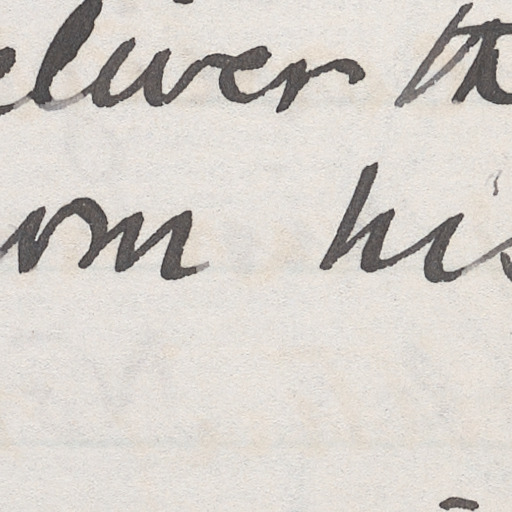 eliver th
om his